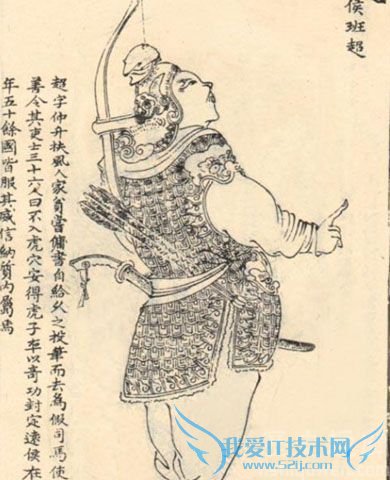 侯班超
超字仲升扶風人家貧嘗傭書自給久之投筆而去為假司馬使
善令其吏士三十六人曰不入虎穴安得虎子率以奇功封定遠侯在
年五十餘國皆服其威信納質內屬焉
我爱IT技术网
www.52ij.com